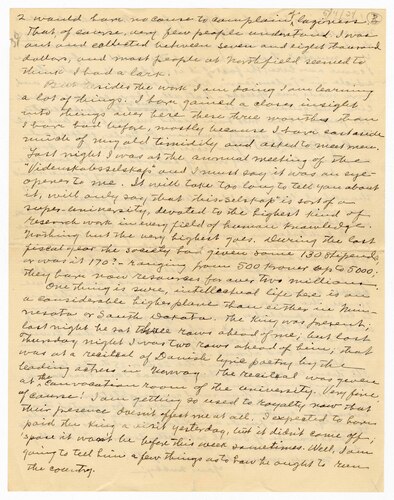 I would have no cause to complain of laziness.
That of course, very few people understand. I was
out and collected between seven and eight thousand
dollars, and most people at Northfield seemed to
think I had a lark.
But besides the work I am doing I am learning
a lot of things. I have gained a closer insight
into things over here these three months than
I have had before, mostly because I have cast aside
much of my old timidity and asked to meet men.
Last night I was at the annual meeting of the
"Videnskabsselskap" and I must say it was an eye-
opener to me. It will take too long to tell you about
it, will only say that this "selskap" is sort of a
super university, devoted to the highest kind of
research work in every field of human knowledge.
Nothing but the very highest goes. During the last
fiscal year the society had given some 130 stipends,
or was it 170?- ranging from 500 Kroner up to 5000;
they have now resources for over two millions.
One thing is sure, intellectual life here is on
a considerable higher plane than either in Min-
nesota or South Dakota. The King was present;
last night he sat three rows ahead of me, but last
Thursday night I was two rows ahead of him, that
was at a recital of Danish lyric poetry by the
leading actress in Norway. The recital was given
at the Convocation room of the university. Very fine,
of course! I am getting so used to royalty now that
their presence doesn't affect me at all. I expected to have
paid the King a visit yesterday, but it didn't come off;
spose it wont be before this week sometimes. Well, I am
going to tell him a few things as to how he ought to run
the country.